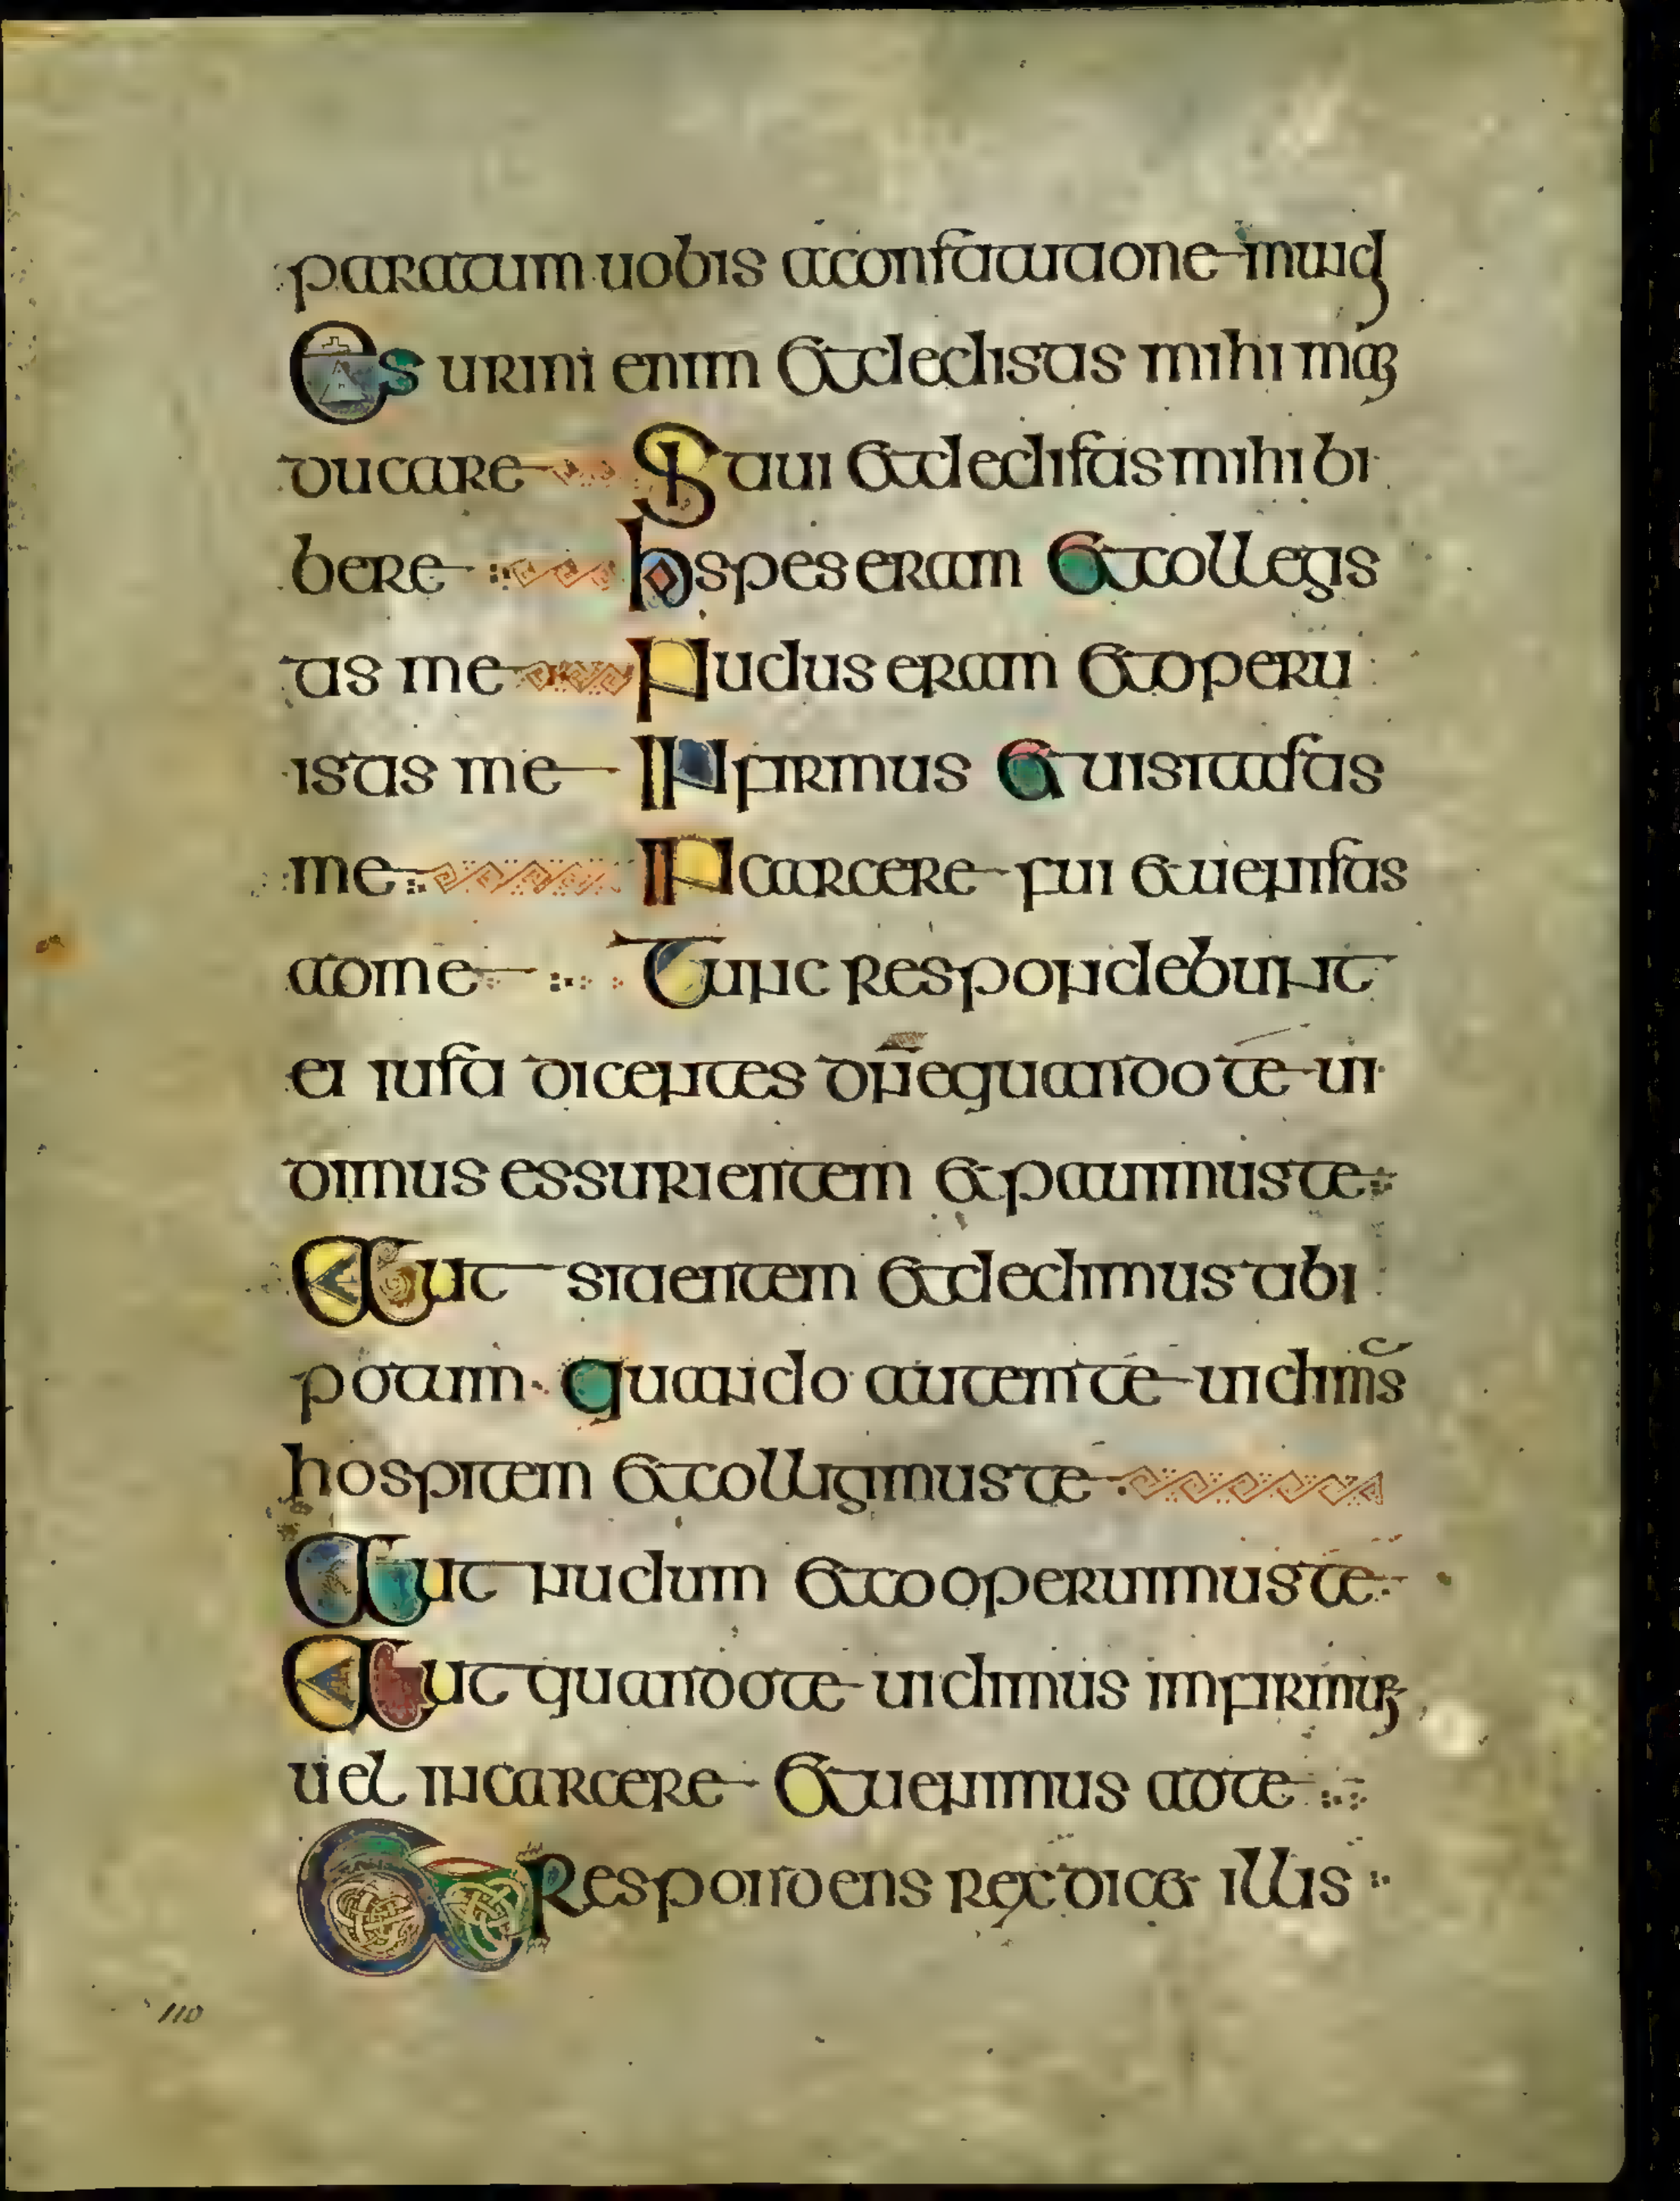 paratum uobis aconstitutione mundi
Essuriui enim et dedistis mihi man
ducare Sitiui et dedistis mihi bi
bere hospes eram et collegis
tis me Nudus eram et operu
istis me INfirmus et uisitastis
me IN carcere fui et uenistis
adme Tunc respondebunt
ei iusti dicentes dn̄e quando te ui
dimus essurientem et pauimus te
Aut sitientem et dedimus tibi
potum quando autem te uidim̄s
hospitem et colligimus te
Aut nudum et cooperuimus te
Aut quando te uidimus infirmum
uel in carcere et uenimus adte
Et Respondens rex dicet illis
110